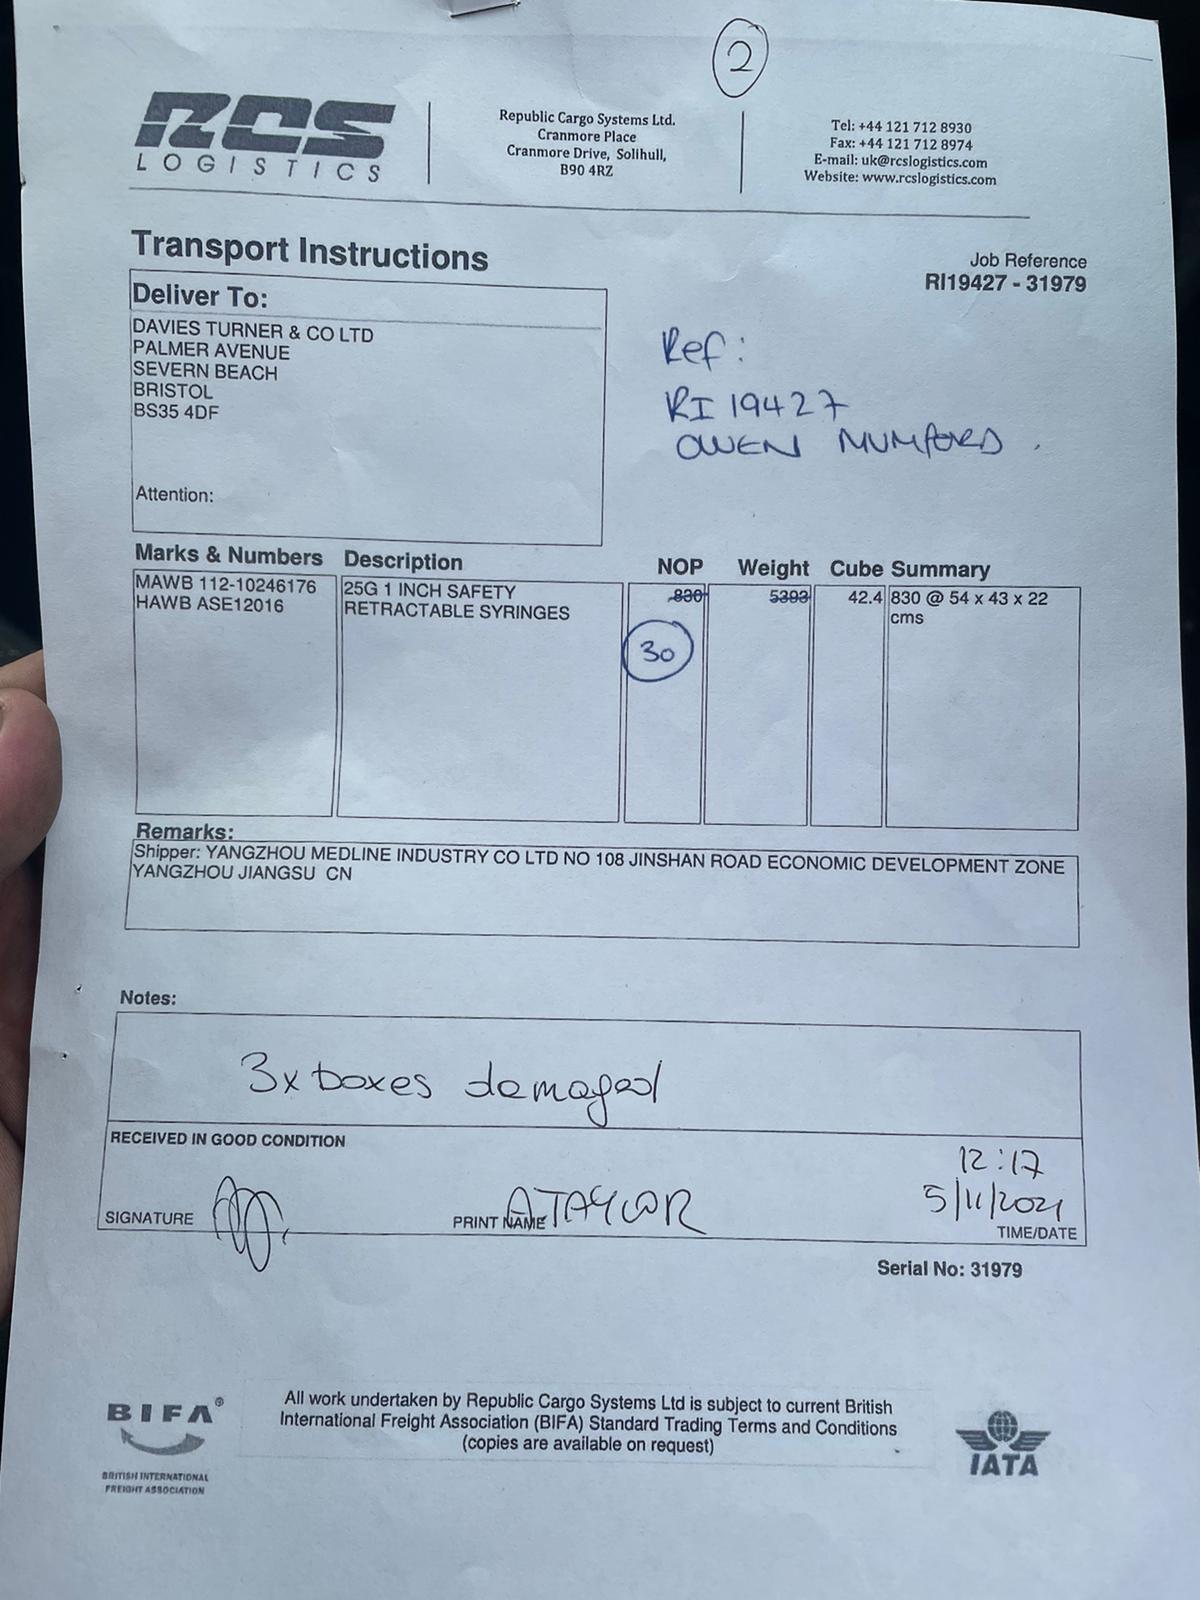 2
RCS
LOGISTICS
Republic Cargo Systems Ltd.
Cranmore Place
Cranmore Drive, Solihull,
B90 4RZ
Tel: +44 121 712 8930
Fax: +44 121 712 8974
E-mail: uk@rcslogistics.com
Website: www.rcslogistics.com
Transport Instructions
Job Reference
RI19427 - 31979
Deliver To:
DAVIES TURNER & CO LTD
PALMER AVENUE
SEVERN BEACH
BRISTOL
BS35 4DF
Attention:
Ref:
RI 19427
OWEN MUMFORD.
Marks & Numbers Description NOP Weight Cube Summary
MAWB 112-10246176 25G 1 INCH SAFETY 830 5393 42.4 830 @ 54 x 43 x 22
HAWB ASE12016 RETRACTABLE SYRINGES cms
30
Remarks:
Shipper: YANGZHOU MEDLINE INDUSTRY CO LTD NO 108 JINSHAN ROAD ECONOMIC DEVELOPMENT ZONE
YANGZHOU JIANGSU CN
Notes:
3x boxes damaged
RECEIVED IN GOOD CONDITION
12:17
5/11/2021
SIGNATURE PRINT NAME A TAYLOR TIME/DATE
Serial No: 31979
BIFA®
BRITISH INTERNATIONAL
FREIGHT ASSOCIATION
All work undertaken by Republic Cargo Systems Ltd is subject to current British
International Freight Association (BIFA) Standard Trading Terms and Conditions
(copies are available on request)
IATA